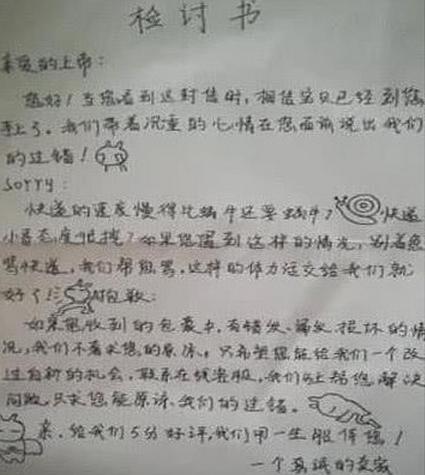 检讨书
亲爱的上帝:
您好!当您看到这封信时,相信宝贝已经到您
手上了。我们带着沉重的心情在您面前说出我们
的过错!
sorry:
快递的速度慢得比蜗牛还要蜗牛? 快递
小哥态度很拽?如果您遇到这样的情况,别着急
骂快递,我们帮您骂,这样的体力活交给我们就
好了! 抱歉:
如果您收到的包裹中,有错发、漏发、损坏的情
况,我们不奢求您的原谅,只希望您能给我们一个改
过自新的机会,联系在线客服,我们马上帮您解决
问题,只求您能原谅我们的过错。
亲,给我们5分好评,我们用一生服侍您!
一个真诚的卖家